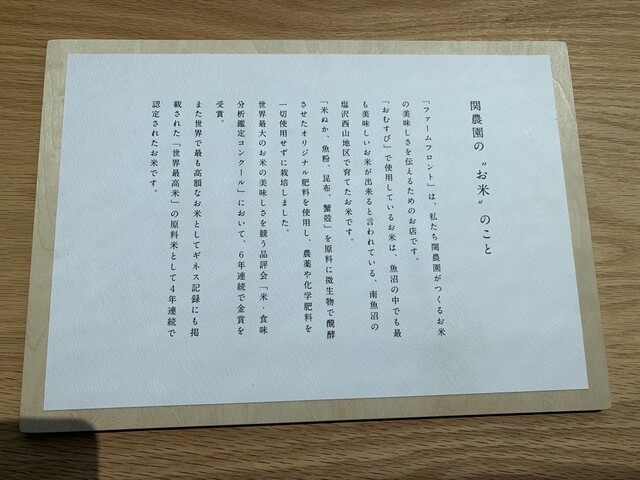 関農園の〝お米〟のこと
「ファームフロント」は、私たち関農園がつくるお米
の美味しさを伝えるためのお店です。
「おむすび」で使用しているお米は、魚沼の中でも最
も美味しいお米が出来ると言われている、南魚沼の
塩沢西山地区で育てたお米です。
「米ぬか、魚粉、昆布、蟹殻」を原料に微生物で醗酵
させたオリジナル肥料を使用し、農薬や化学肥料を
一切使用せずに栽培しました。
世界最大のお米の美味しさを競う品評会「米・食味
分析鑑定コンクール」において、6年連続で金賞を
受賞。
また世界で最も高額なお米としてギネス記録にも掲
載された「世界最高米」の原料米として4年連続で
認定されたお米です。